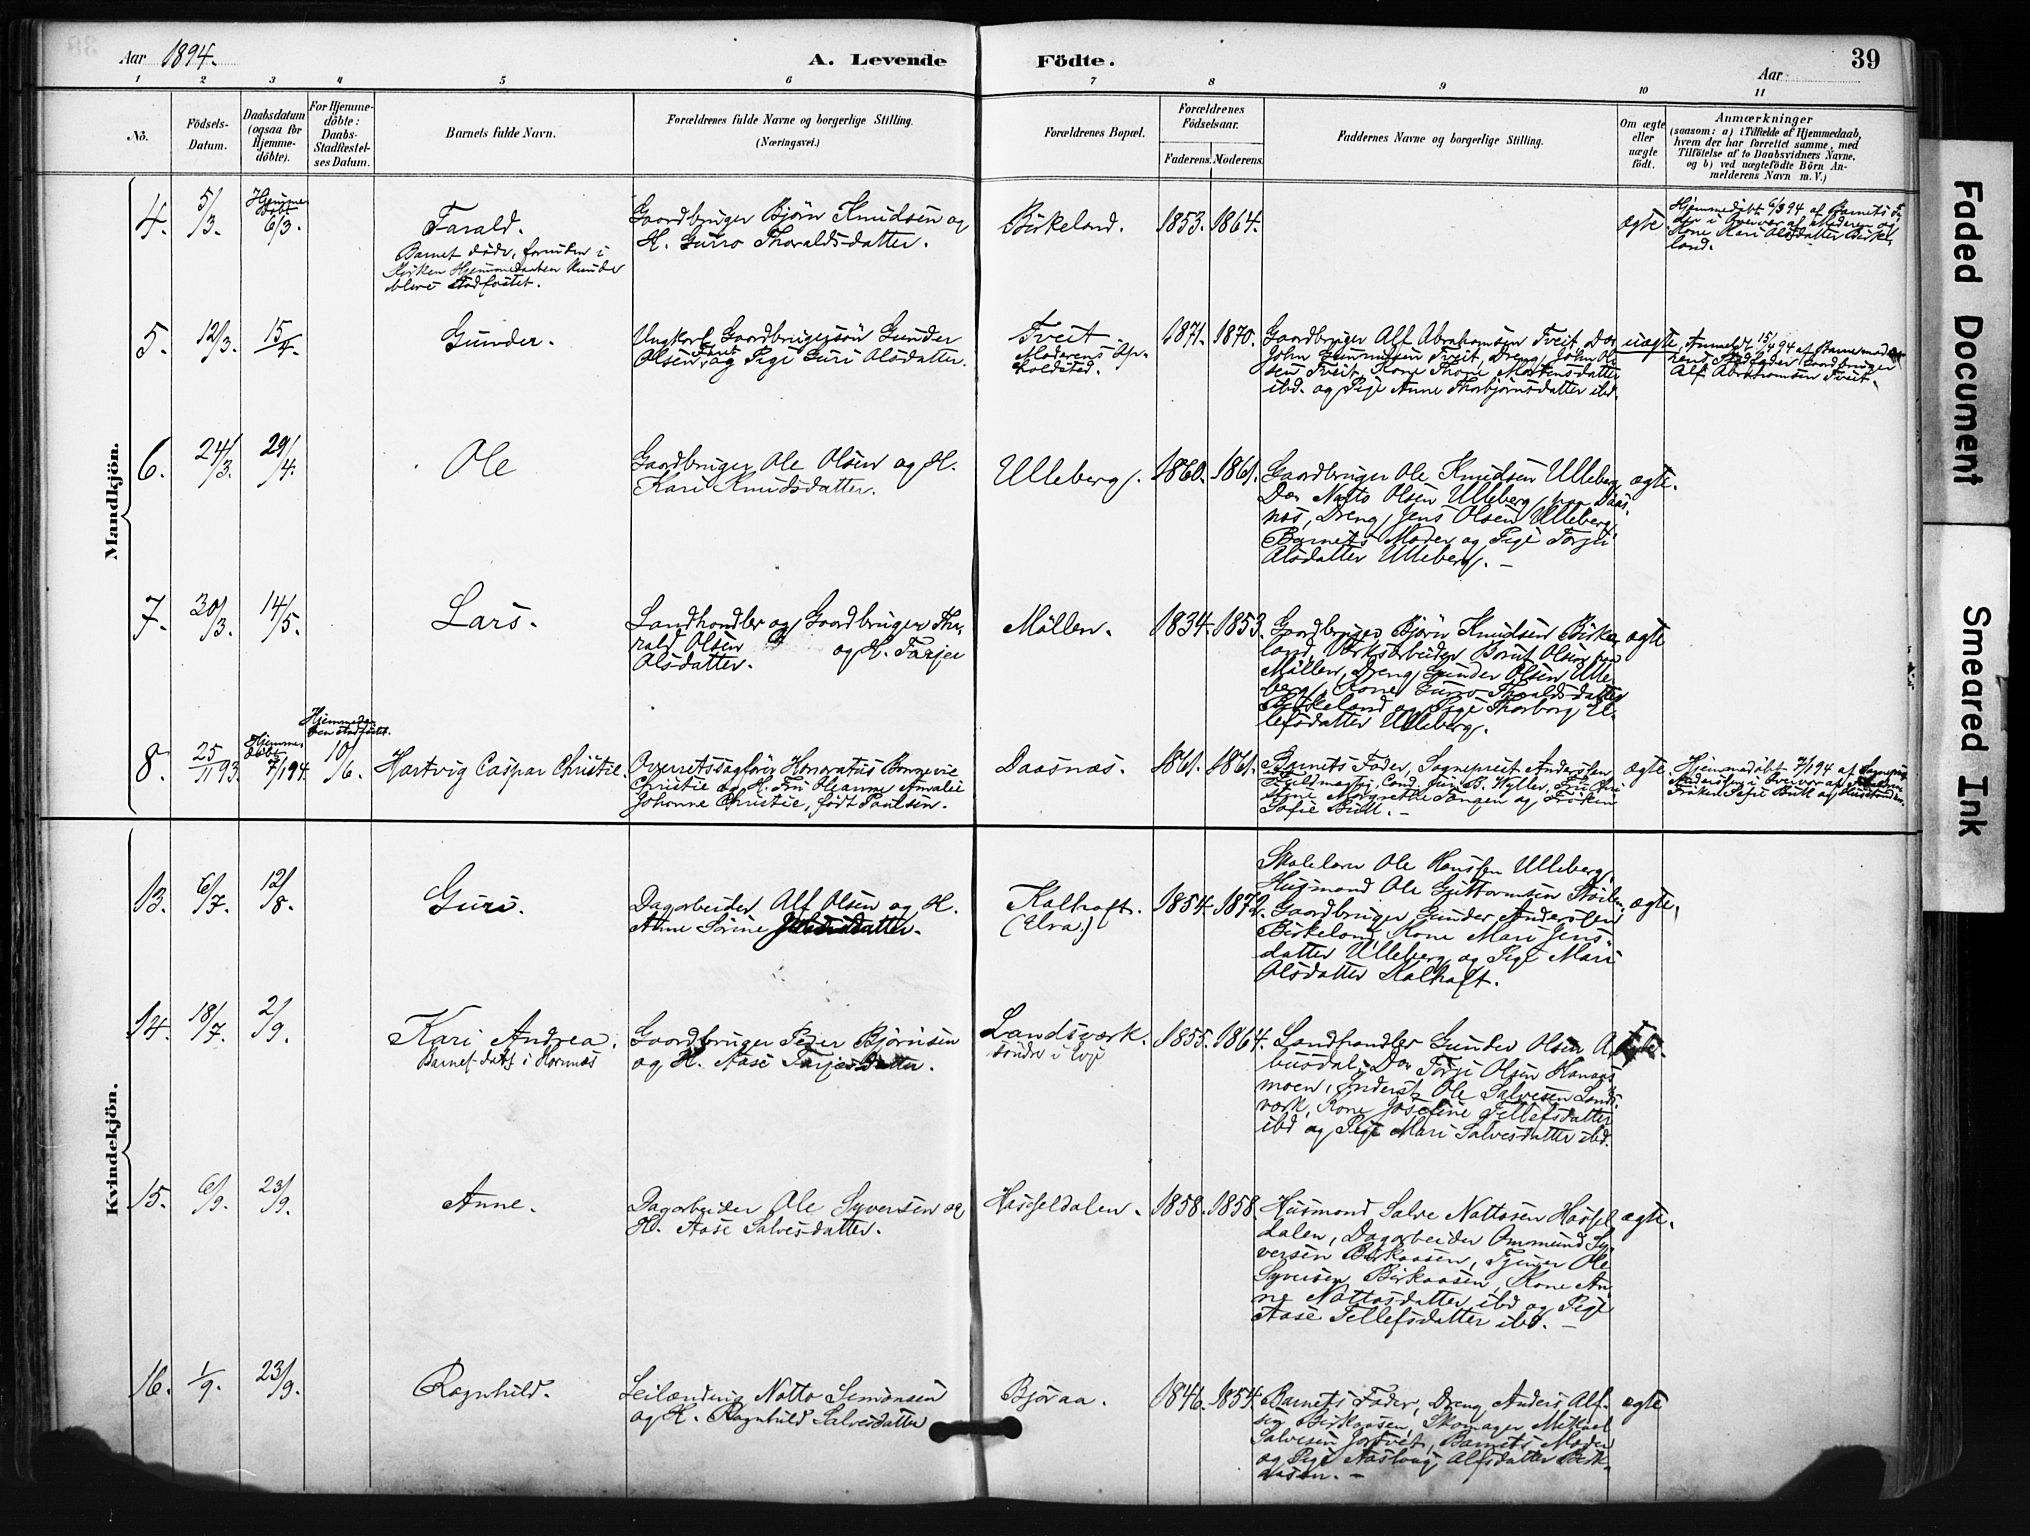 Aar 1894.
A. Levende Födte.
39
Aar
1 2 3 4 5 6 7 8 9 10 11
Nö.
Födsels-
Datum.
Daabsdatum
(ogsaa for
Hjemme-
döbte).
For Hjemme-
döbte:
Daabs-
Stadfæstel-
ses Datum.
Barnets fulde Navn.
Forældrenes fulde Navne og borgerlige Stilling.
(Næringsvei.)
Forældrenes Bopæl.
Forældrenes
Födselsaar.
Faderens. Moderens.
Faddernes Navne og borgerlige Stilling.
Om ægte
eller
uægte
födt.
Anmærkninger
(saasom: a) i Tilfælde af Hjemmedaab,
hvem der har forrettet samme, med
Tilföielse af to Daabsvidners Navne.
og b) ved uægtefödte Börn An-
melderens Navn m.V.)
Mandkjön.
4.
5/3.
Hjemme
döbt
6/3.
Tarald.
Barnet döde, forinden i
Kirken Hjemmedaaben kunde
blive stadfæstet.
Gaardbruger Bjørn Knudsen og
H. Gurro Tharaldsdatter.
Birkeland.
1853. 1864.
ægte
Hjemmedöbt 6/3 94 af Barnets Fa-
der i Overvær af Moderen og
Kone Kari Olsdatter Birke-
land.
5.
12/3.
15/4.
Gunder.
Ungkarl Gaardbrugersön Gunder
Olsen og Pige Guri Olsdatter.
Tveit
Moderens Op-
holdsted.
1871. 1870.
Gaardbruger Alf Abrahamsen Tveit, Do
John Gunnufsen Tveit, Dreng John Ol-
sen Tveit, Kone Thone Mortensdatter
ibd. og Pige Anne Thorbjørnsdatter ibd.
uægte
Anmeldt 15/4 94 af Barnemode-
rens Stedfader, Gaardbruger
Alf Abrahamsen Tveit.
6.
24/3.
29/4.
Ole
Gaardbruger Ole Olsen og H.
Kari Knudsdatter.
Ulleberg.
1860. 1861.
Gaardbruger Ole Knudsen Ulleberg,
Do Natto Olsen Ulleberg paa Daas-
næs, Dreng Jens Olsen Ulleberg,
Barnets Moder og Pige Torjer
Olsdatter Ulleberg. —
ægte.
7.
30/3.
14/5.
Lars.
Landhandler og Gaardbruger Tha-
rald Olsen og H. Tarjer
Olsdatter.
Möllen.
1834. 1853.
Gaardbruger Bjørn Knudsen Birke-
land, Værksarbeider Borut Olsen paa
Möllen, Dreng Gunder Olsen Ulle-
berg, Kone Gurro Tharaldsdatter
Birkeland og Pige Thorborg El-
lefsdatter Ulleberg.
ægte
8.
25/11 93.
Hjemme-
döbt
7/1 94.
Hjemmedaa-
ben stadfæstet.
10/6.
Hartvig Caspar Christie.
Overretssagförer Honoratus Bonnevie
Christie og H. Fru Oleanne Amalie
Johanne Christie, födt Paulsen.
Daasnæs.
1861. 1861.
Barnets Fader, Sognepræst Anderssen
Fuldmægtig, Cand. jur. B. Hyller, Fru Chri-
stine Margrethe Tangen og Fröken
Sofie Butt. —
ægte.
Hjemmedöbt 7/1 94 af Sognepræst
Anderssen i Overvær af
Fröken Sofie Butt og Husstanden.
Kvindekjön.
13.
6/7.
12/8.
Guri.
Dagarbeider Alf Olsen og H.
Anne Sörine
Kalhaft.
(Evra.)
1854. 1872.
Skolelærer Ole Hanssen Ulleberg,
Husmand Ole Guttormsen Stöilen,
Gaardbruger Gunder Anderssen
Birkeland, Kone Mari Jens-
datter Ulleberg, og Pige Mari
Olsdatter Kalhaft.
ægte.
14.
18/7.
2/9.
Kari Andrea.
Barnet döbt i Hornnæs
Gaardbruger Peder Bjørnsen
og H. Aase Tarjesdatter.
Landsværk.
söndre i Evje
1855. 1864.
Landhandler Gunder Olsen A-
busdal, Do Torje Olsen Hanaas-
moen, Inderst Ole Salvesen Lands-
værk, Kone Josefine Tellefsdatter
ibd og Pige Mari Salvesdatter ibd.
ægte.
15.
6/9.
23/9.
Anne.
Dagarbeider Ole Syversen og
H. Aase Salvesdatter.
Hasseldalen.
1858. 1858.
Husmand Salve Nattosen Hassel
dalen, Dagarbeider Ommund Sy-
versen Birkaasen, Tjener Ole
Syversen Birkaasen, Kone An-
ne Nattosdatter ibd og Pige
Aase Tellefsdatter ibd. —
ægte.
16.
1/9.
23/9.
Ragnhild.
Leilænding Natto Simonsen
og H. Ragnhild Salvesdatter
Bjøraa.
1846. 1854.
Barnets Fader, Dreng Anders Alf-
sen Birkaasen, Skomager Mikael
Salvesen Jortveit, Barnets Moder
og Pige Aaslaug Alfsdatter Birk-
aasen. —
ægte
Faded Document
Smeared Ink